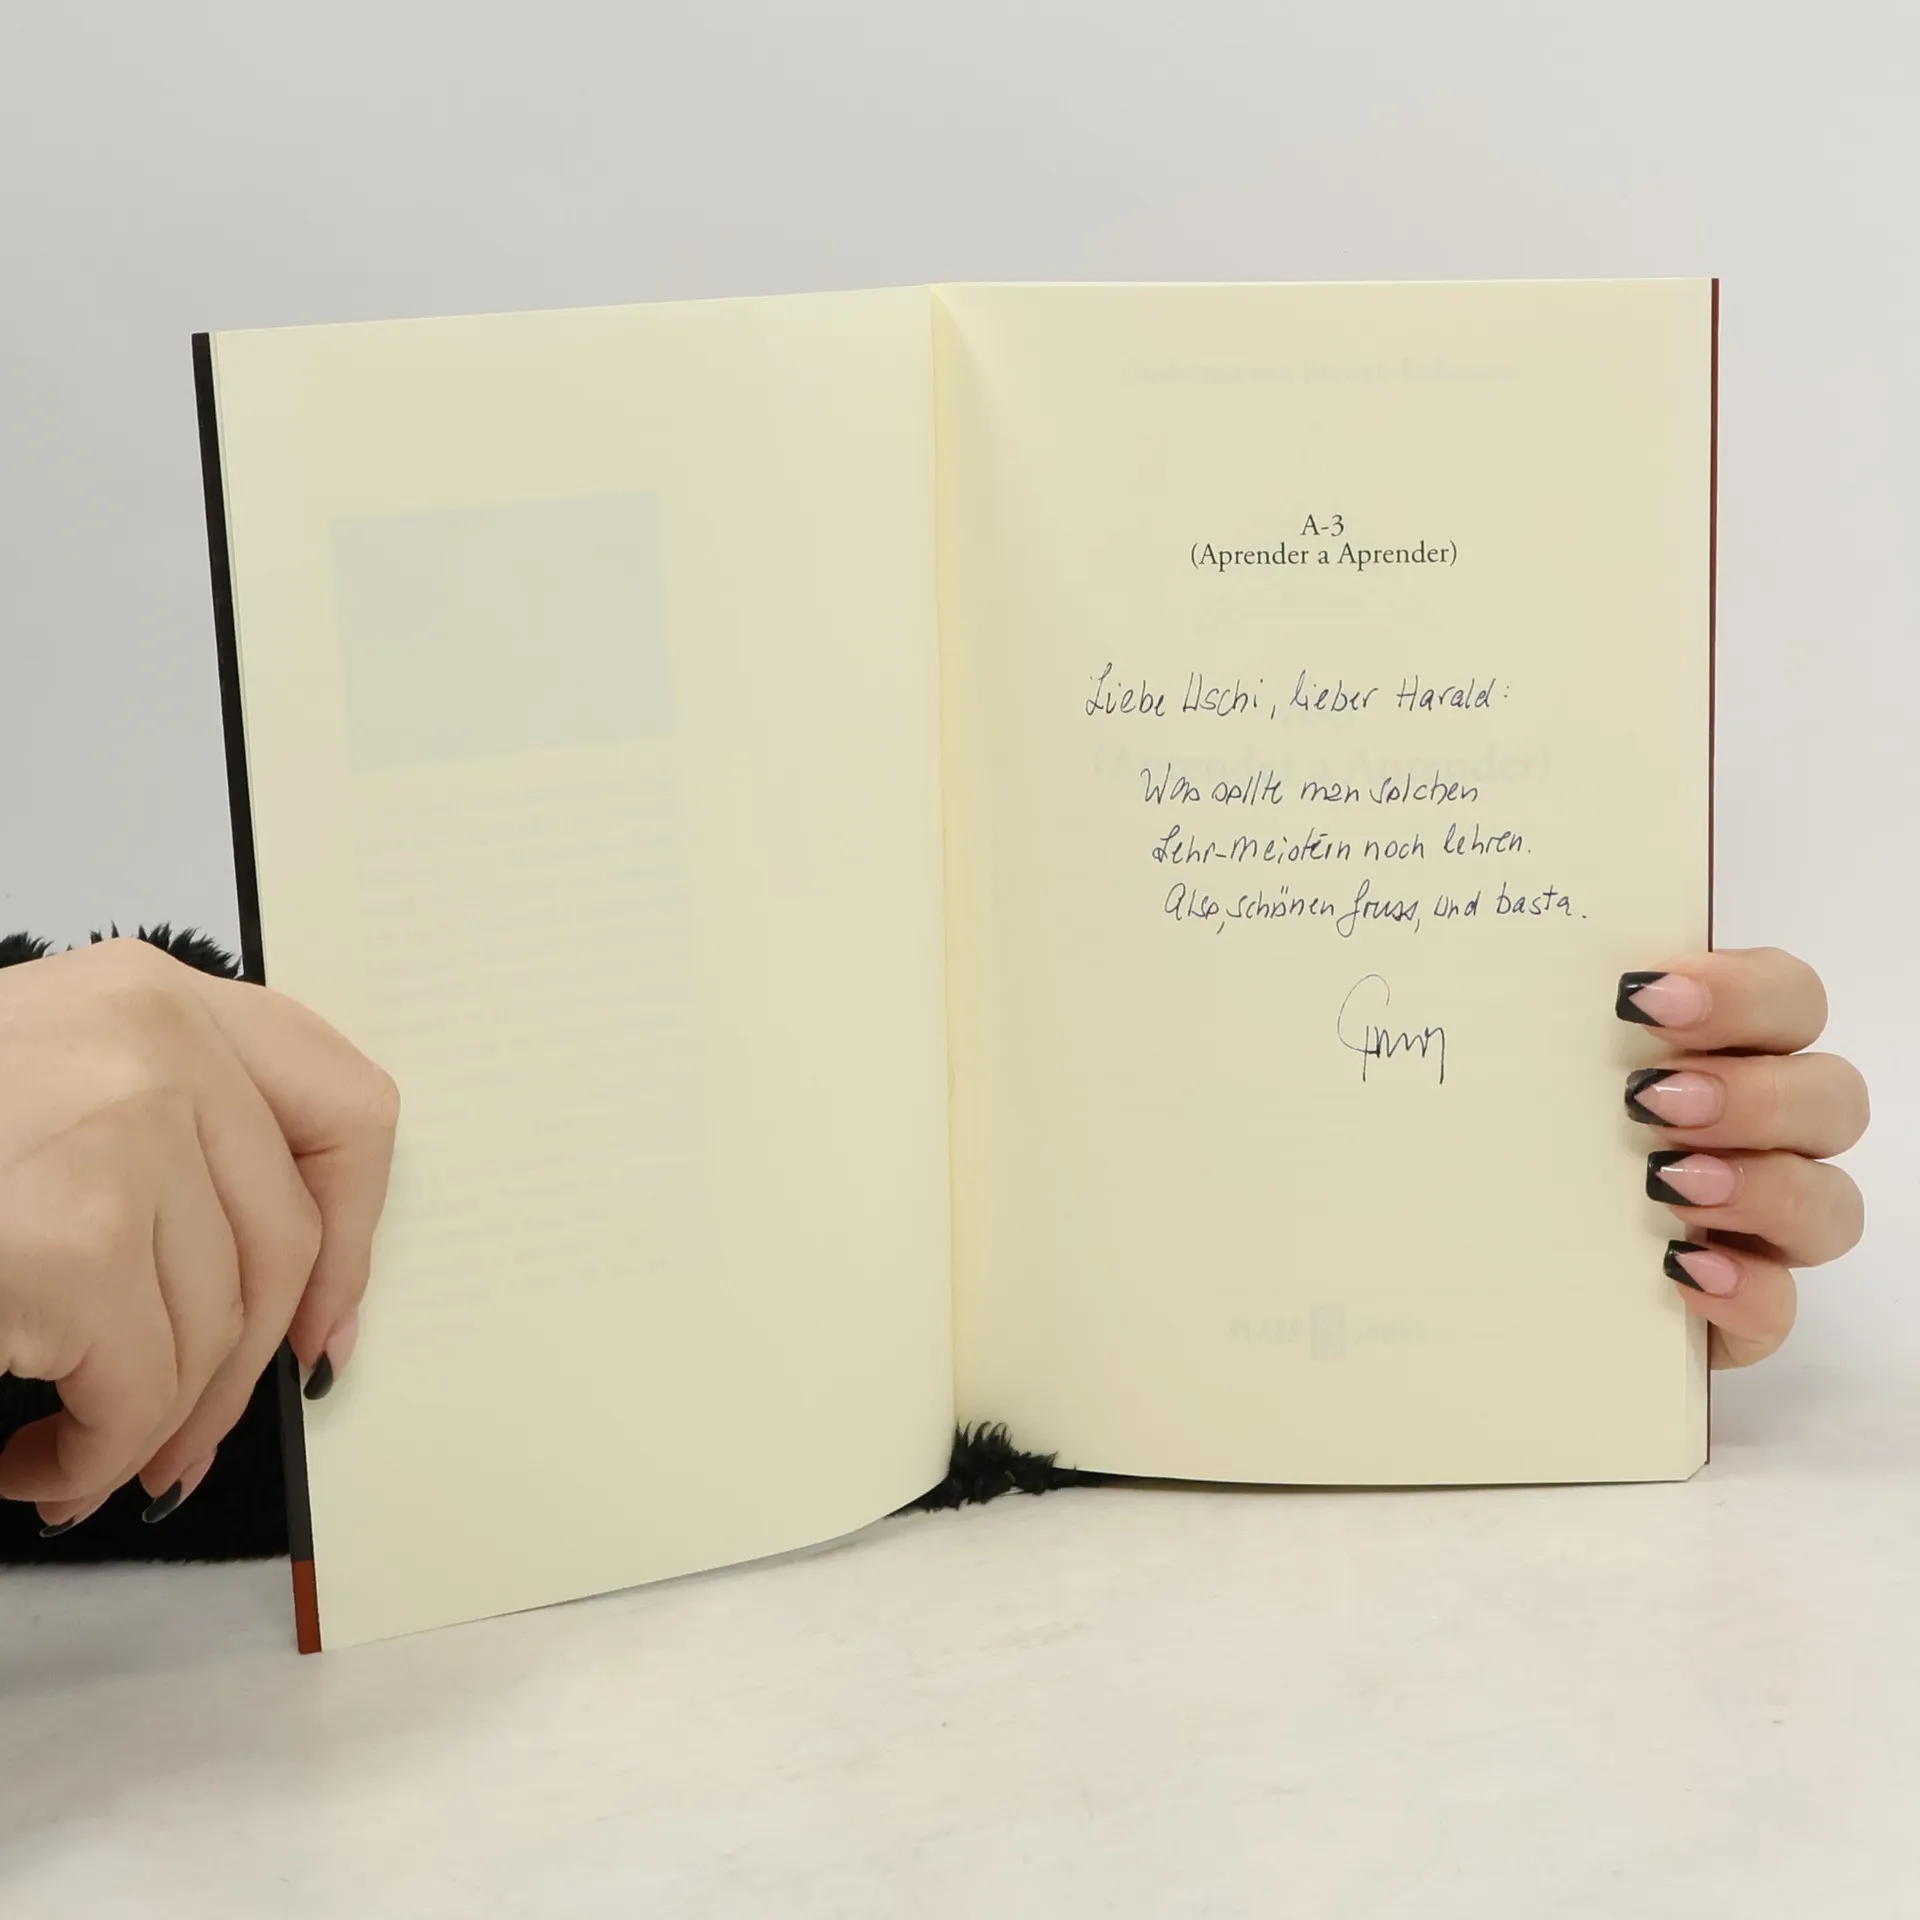 A-3
(Aprender a Aprender)
Liebe Uschi, lieber Harald:
Was sollte man solchen
Lehr-meistern noch lehren.
Also, schönen Gruss, und basta.